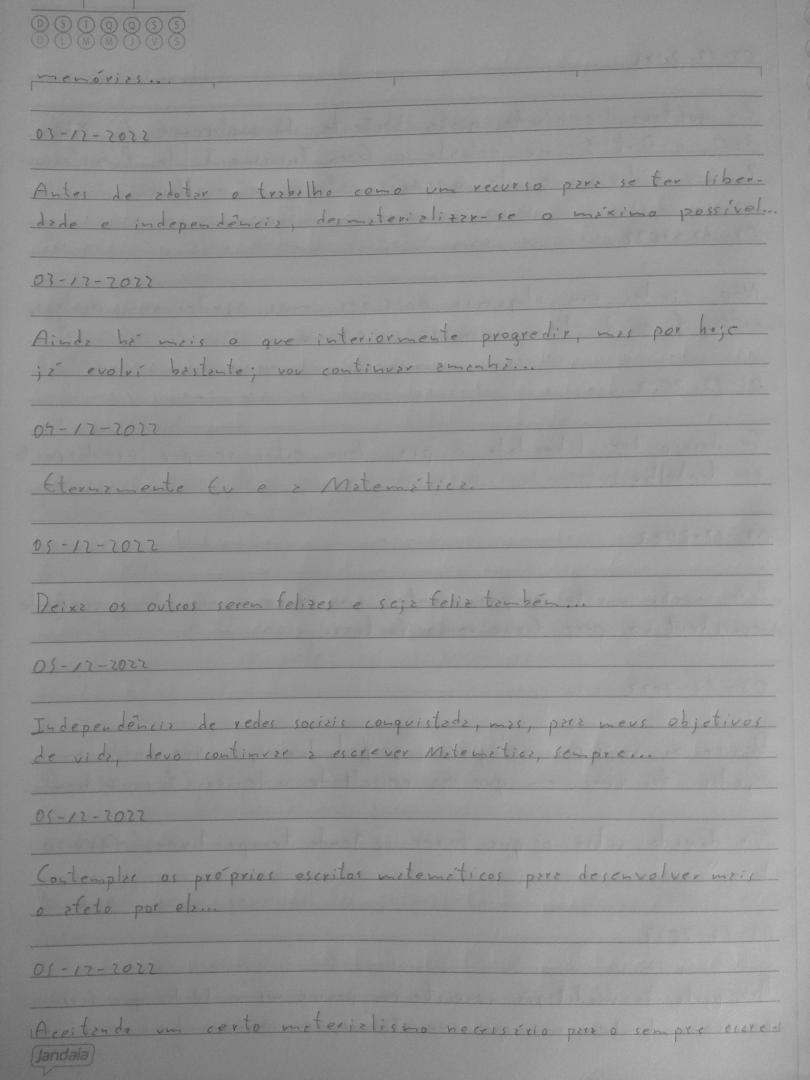 D S T Q Q S S
D L M M J V S
memórias...
03-12-2022
Antes de adotar o trabalho como um recurso para se ter liber-
dade e independência, desmaterializar-se o máximo possível...
03-12-2022
Ainda há mais o que interiormente progredir, mas por hoje
já evolví bastante; vou continuar amanhã...
04-12-2022
Eternamente Eu e a Matemática.
05-12-2022
Deixa os outros serem felizes e seja feliz também...
05-12-2022
Independência de redes sociais conquistada, mas, para meus objetivos
de vida, devo continuar a escrever Matemática, sempre...
05-12-2022
Contemplar os próprios escritos matemáticos para desenvolver mais
o afeto por ela...
05-12-2022
Aceitando um certo materialismo necessário para o sempre
Jandaia